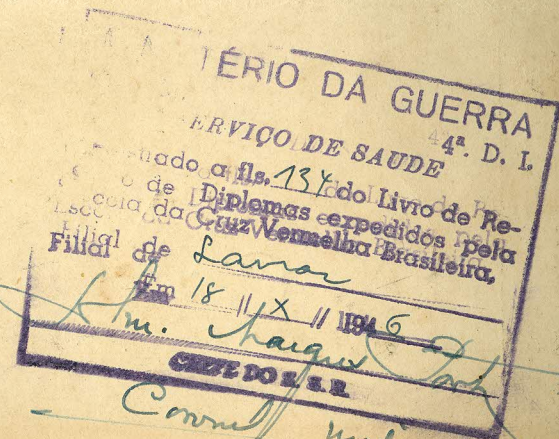 TÉRIO DA GUERRA
4ª. D. I.
ERVIÇO DE SAUDE
ado a fls. 134 do Livro de Re-
de Diplomas expedidos pela
cola da Cruz Vermelha Brasileira,
Filial de Lavras
Em 18 // X // 1946
CHEFE DO S. S. R.
Coronel